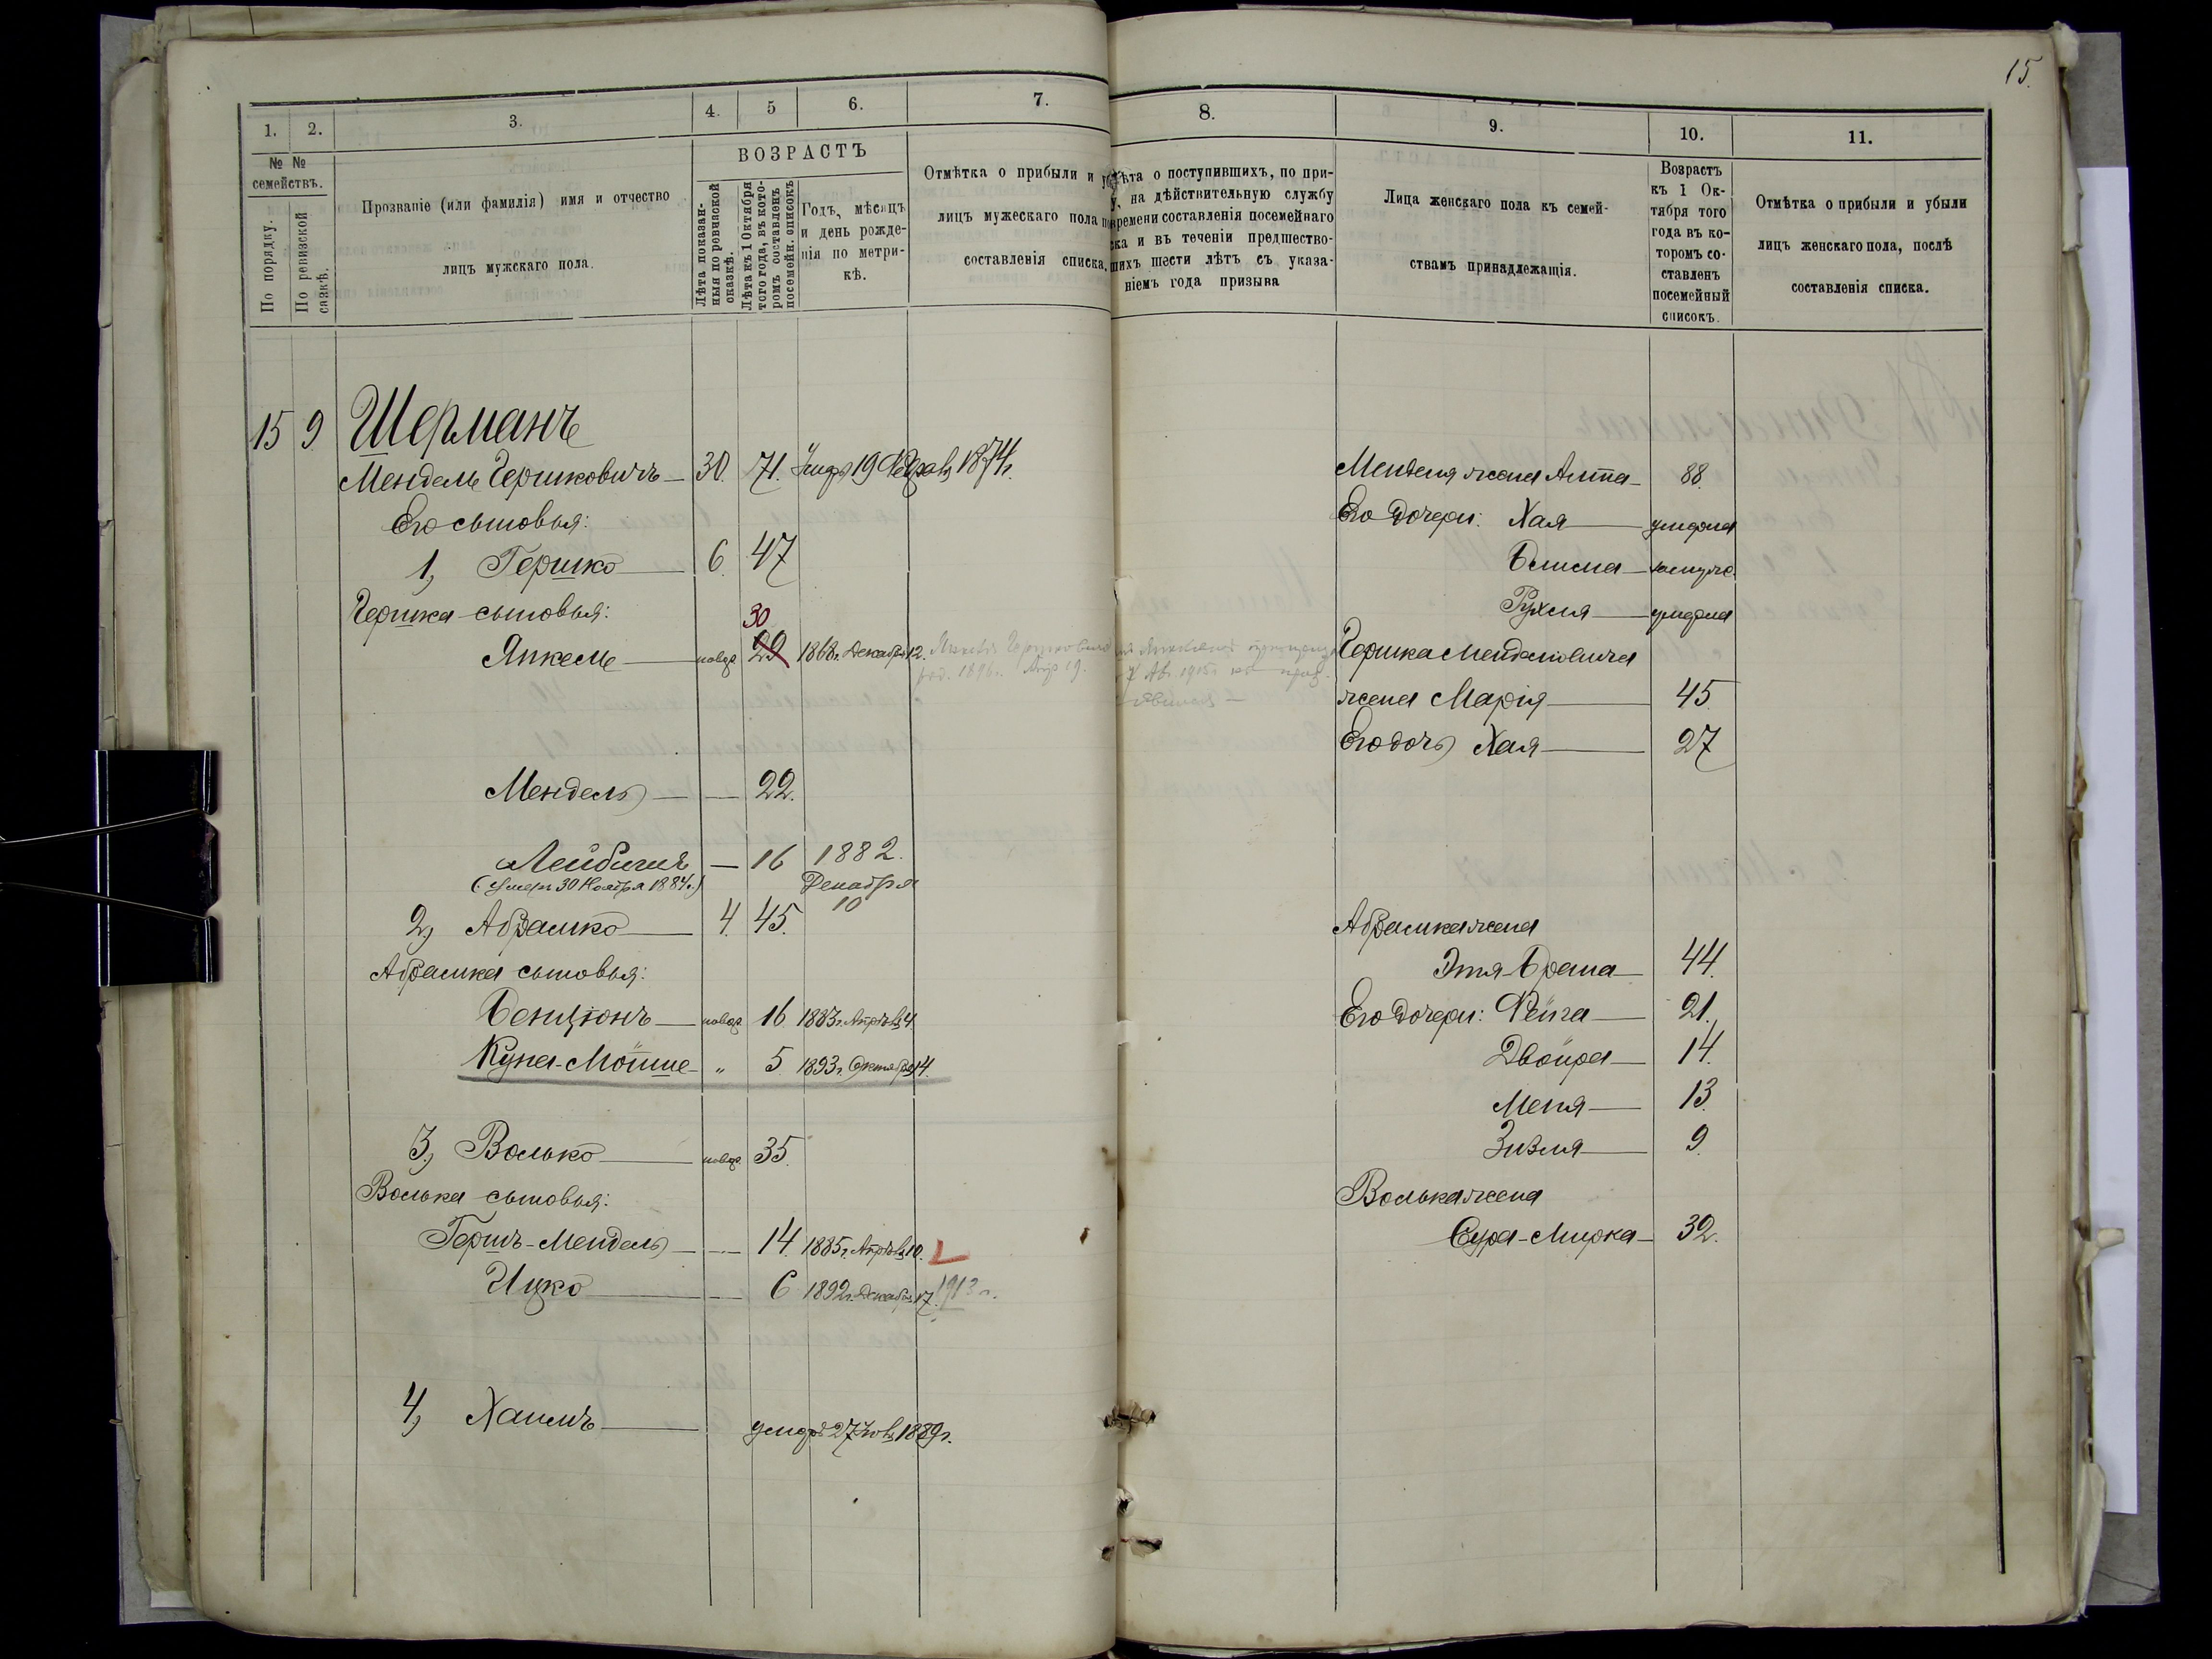 15.
1. 2. 3. 4. 5 6. 7. 8. 9. 10. 11.
№ № семействъ.
По порядку.
По ревизской сказкѣ.
Прозваніе (или фамилія) имя и отчество
лицъ мужскаго пола.
ВОЗРАСТЪ
Лѣта показан-
ныя по ревизской
сказкѣ.
Лѣта къ 1 Октября
того года, въ кото-
ромъ составленъ
посемейн. списокъ
Годъ, мѣсяцъ
и день рожде-
нія по метри-
кѣ.
Отмѣтка о прибыли и
лицъ мужескаго пола
составленія списка.
ѣта о поступившихъ, по при-
у, на дѣйствительную службу
времени составленія посемейнаго
ска и въ теченіи предшество-
шихъ шести лѣтъ съ указа-
ніемъ года призыва
Лица женскаго пола къ семей-
ствамъ принадлежащія.
Возрастъ
къ 1 Ок-
тября того
года въ ко-
торомъ со-
ставленъ
посемейный
списокъ.
Отмѣтка о прибыли и убыли
лицъ женскаго пола, послѣ
составленія списка.
15 9 Шерманъ
Мендель Гершковичъ 30. 71. 19 1874г.
Его сыновья:
1, Гершко 6. 47
Гершка сыновья: 30
Янкель новор. 29 1868г. Декабря 12.
Мендель — 22.
Лейбишъ — 16 1882.
(Умеръ 30 Ноября 1884г.) Декабря
10
2, Абрамко 4. 45.
Абрамка сыновья:
Бенціонъ новор. 16. 1883г. Апрѣля 4
Куна-Мойше „ 5 1893г. Октября 14.
3, Волько новор. 35.
Волька сыновья:
Гершъ-Мендель — 14. 1885г. Апрѣля 10.
Ицко — 6 1892г. Декабря 17. 1913г.
4, Хаимъ умеръ 27 1889г.
Менделя жена Алта 88.
Его дочери: Хая умерла
замуж.
Рухля умерла
Гершка Менделовича
жена Марія 45.
Его дочь Хая 27
Абрамка жена
Этя-Брана 44.
Его дочери: Фейга 21.
Двойра 14.
Меня 13.
Зизля 9.
Волька жена
Сура-Мирка 32.